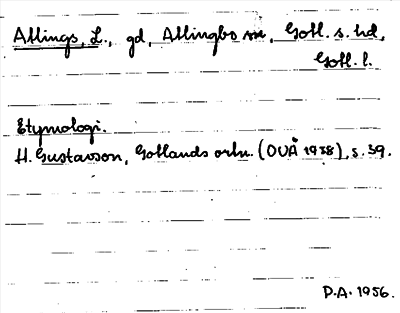 Allings, L., gd, Allingbo sn, Gotl. s. hd,
Gotl. l.
Etymologi.
H. Gustavson, Gotlands ortn. (OUÅ 1938), s. 39.
P.A. 1956.